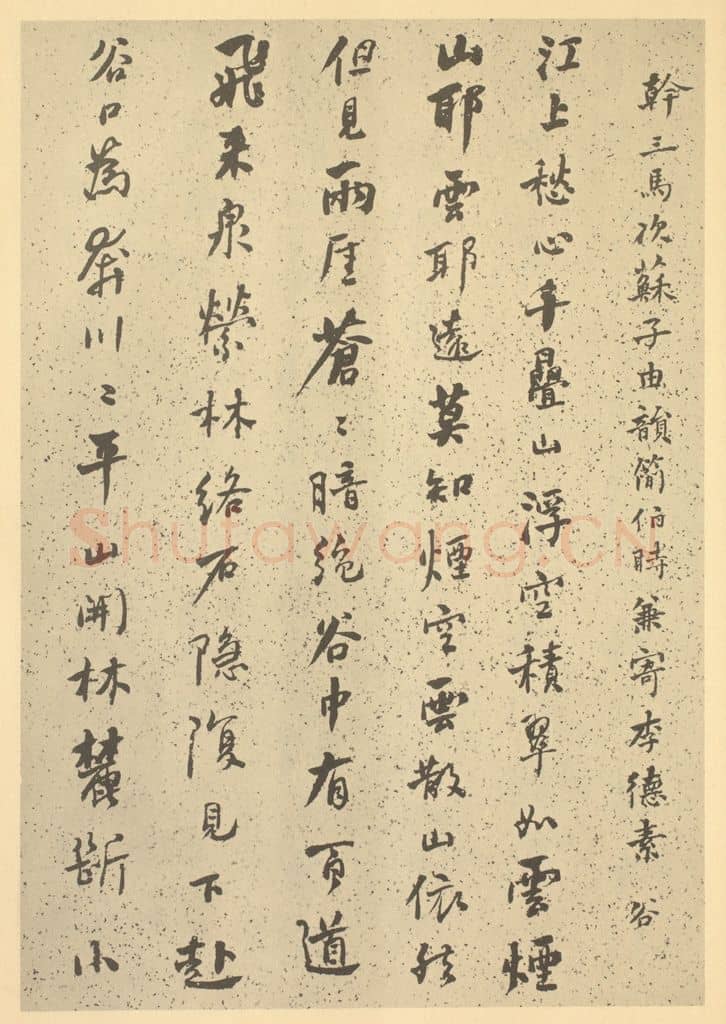 幹三馬次蘇子由韻簡伯時兼寄李德素 谷
江上愁心千疊山浮空積翠如雲煙
山耶雲耶遠莫知煙空雲散山依然
但見兩厓蒼〻暗絶谷中有百道
飛来泉縈林絡石隐復見下赴
谷口為奔川〻平山開林麓斷小
Shufawang.CN